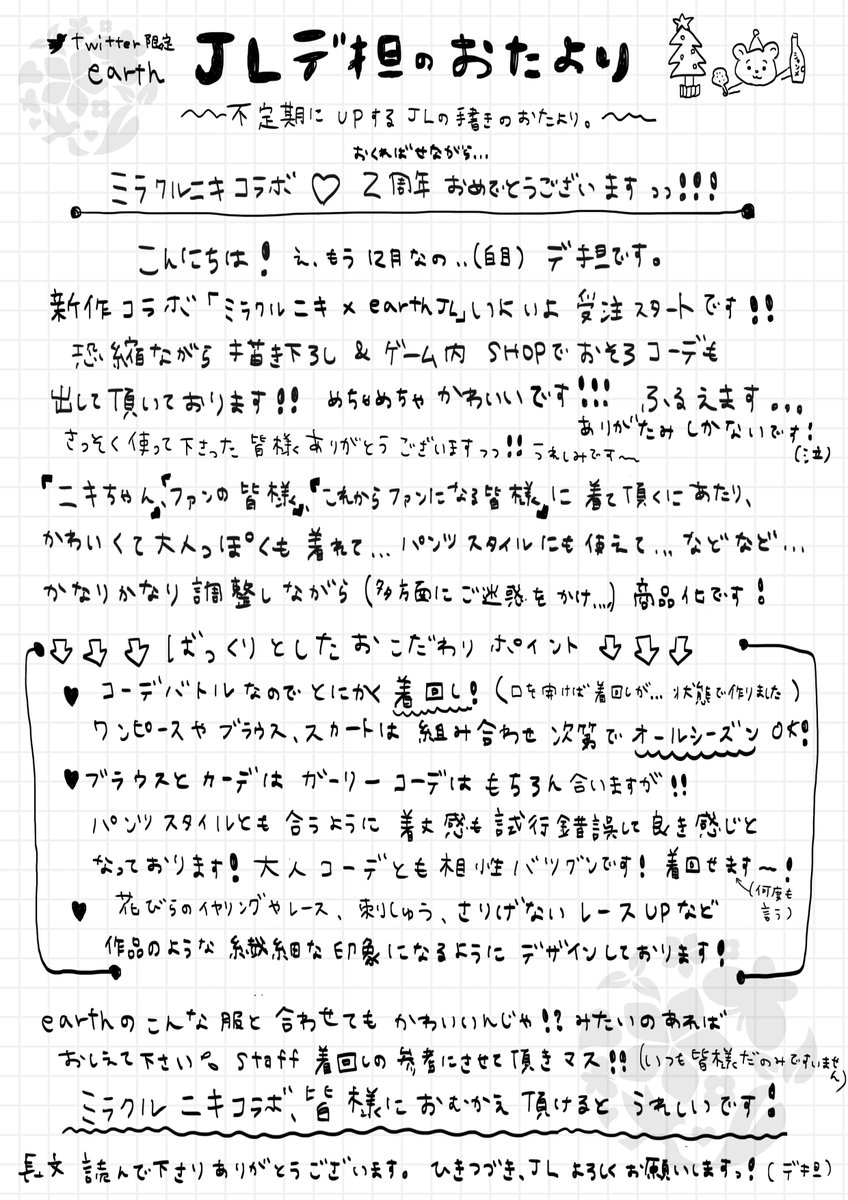 twitter限定
earth
JLデ担のおたより
〜〜不定期にUPするJLの手書きのおたより。〜〜
おくればせながら...
ミラクルニキコラボ♡2周年おめでとうございますっっ!!!
こんにちは! え、もう12月なの..(白目) デ担です。
新作コラボ「ミラクルニキ×earthJL」ついにいよ受注スタートです!!
恐縮ながら 描き下ろし & ゲーム内 SHOPでおそろコーデも
出して頂いております!! めちゃめちゃかわいいです!!! ふるえます...
ありがたみしかないです!(泣)
さっそく使って下さった皆様ありがとうございますっっ!! うれしみです〜
『ニキちゃん』、『ファンの皆様』、『これからファンになる皆様』に着て頂くにあたり、
かわいくて大人っぽくも着れて...パンツスタイルにも使えて...などなど...
かなりかなり調整しながら(多方面にご迷惑をかけ...)商品化です!
⇩⇩⇩ ばっくりとしたおこだわりポイント ⇩⇩⇩
♥ コーデバトルなのでとにかく着回し!(口を開けば着回しが...状態で作りました)
ワンピースやブラウス、スカートは組み合わせ次第でオールシーズンOK!
♥ブラウスとカーデはガーリーコーデはもちろん合いますが!!
パンツスタイルとも合うように着丈感も試行錯誤して良き感じと
なっております! 大人コーデとも相性バツグンです! 着回せます〜!
(何度も言う)
♥ 花びらのイヤリングやレース、刺しゅう、さりげないレースUPなど
作品のような繊細な印象になるようにデザインしております!
earthのこんな服と合わせてもかわいいんじゃ!? みたいのあれば
おしえて下さい。staff着回しの参考にさせて頂きマス!!(いつも皆様だのみですいません)
ミラクルニキコラボ、皆様におむかえ頂けるとうれしいです!
長文読んで下さりありがとうございます。ひきつづき、JLよろしくお願いしますっ!(デ担)